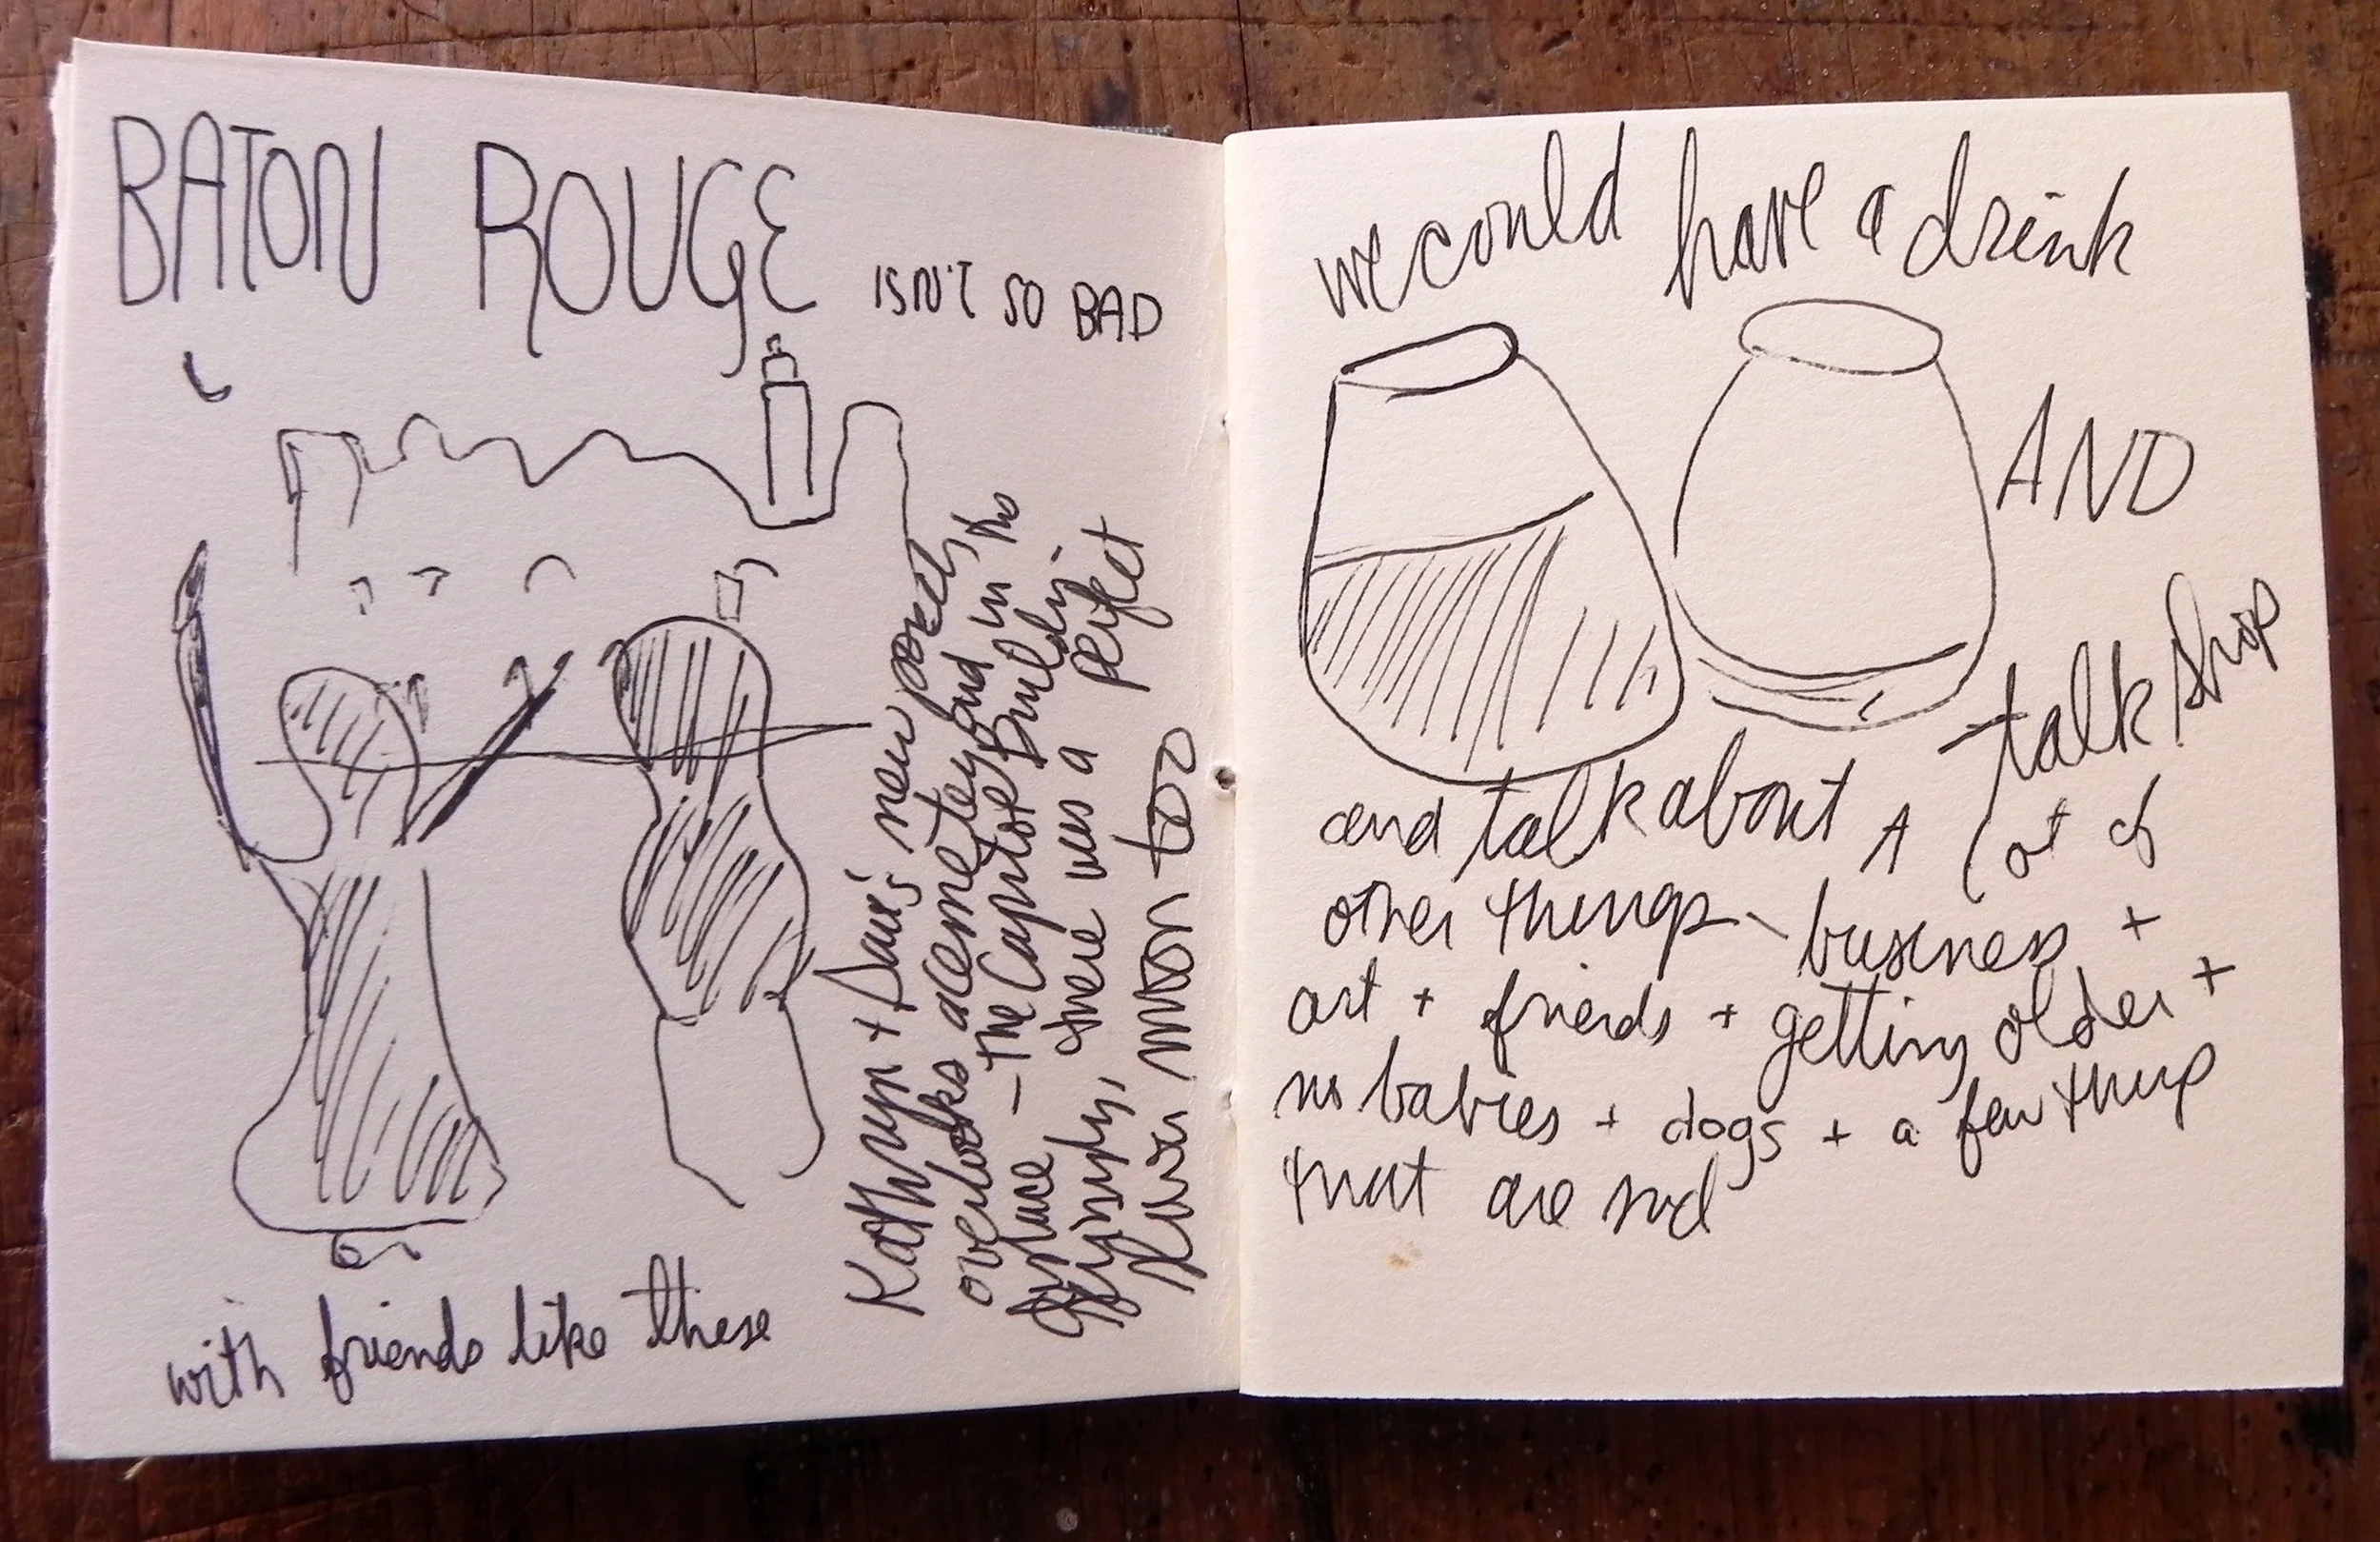 BATON ROUGE
ISN'T SO BAD
Kathryn + Dave's new porch
overlooks a cemetery and in the
distance – the Capitol Building.
there was a perfect
moon too
with friends like these
we could have a drink
AND
talk shop
and talk about A lot of
other things – business +
art + friends + getting older +
no babies + dogs + a few things
that are sad